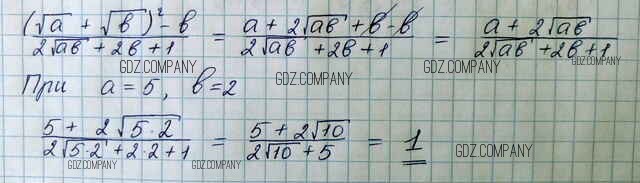 ((√a + √b)² - b)/(2√ab + 2b + 1) = (a + 2√ab + b - b)/(2√ab + 2b + 1) = (a + 2√ab)/(2√ab + 2b + 1)
GDZ.COMPANY GDZ.COMPANY GDZ.COMPANY
При a = 5, b = 2
(5 + 2√5·2)/(2√5·2 + 2·2 + 1) = (5 + 2√10)/(2√10 + 5) = 1
GDZ.COMPANY GDZ.COMPANY GDZ.COMPANY